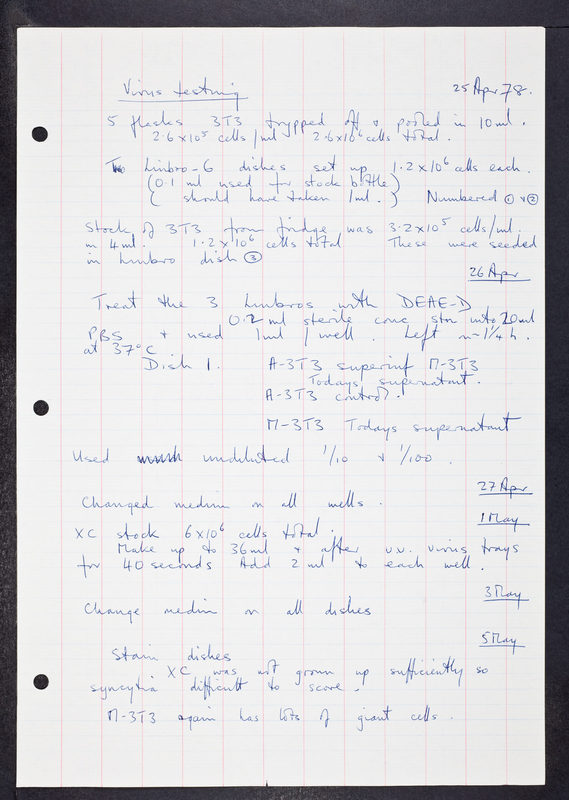 Virus testing
25 Apr 78.
5 flasks 3T3 trypped off & pooled in 10 ml.
2.6 x 10⁵ cells/ml 2.6 x 10⁶ cells total.
Two Linbro-6 dishes set up 1.2 x 10⁶ cells each.
(0.1 ml used for stock bottle)
( should have taken 1ml. ) Numbered ① & ②
Stock of 3T3 from fridge was 3.2 x 10⁵ cells/ml.
in 4ml. 1.2 x 10⁶ cells total These were seeded
in Linbro dish ③
26 Apr
Treat the 3 Linbros with DEAE-D
0.2 ml sterile conc stn into 20ml
PBS & used 1ml / well. Left ~ 1/4 h.
at 37°C
Dish 1. A-3T3 superinf M-3T3
Todays supernatant.
A-3T3 control.
M-3T3 Todays supernatant
Used undiluted 1/10 & 1/100.
27 Apr
Changed medium on all wells.
1 May
XC stock 6 x 10⁶ cells total.
Make up to 36ml & after u.v. virus trays
for 40 seconds Add 2 ml to each well.
3 May
Change medium on all dishes
5 May
Stain dishes
XC was not grown up sufficiently so
syncytia difficult to score.
M-3T3 again has lots of giant cells.